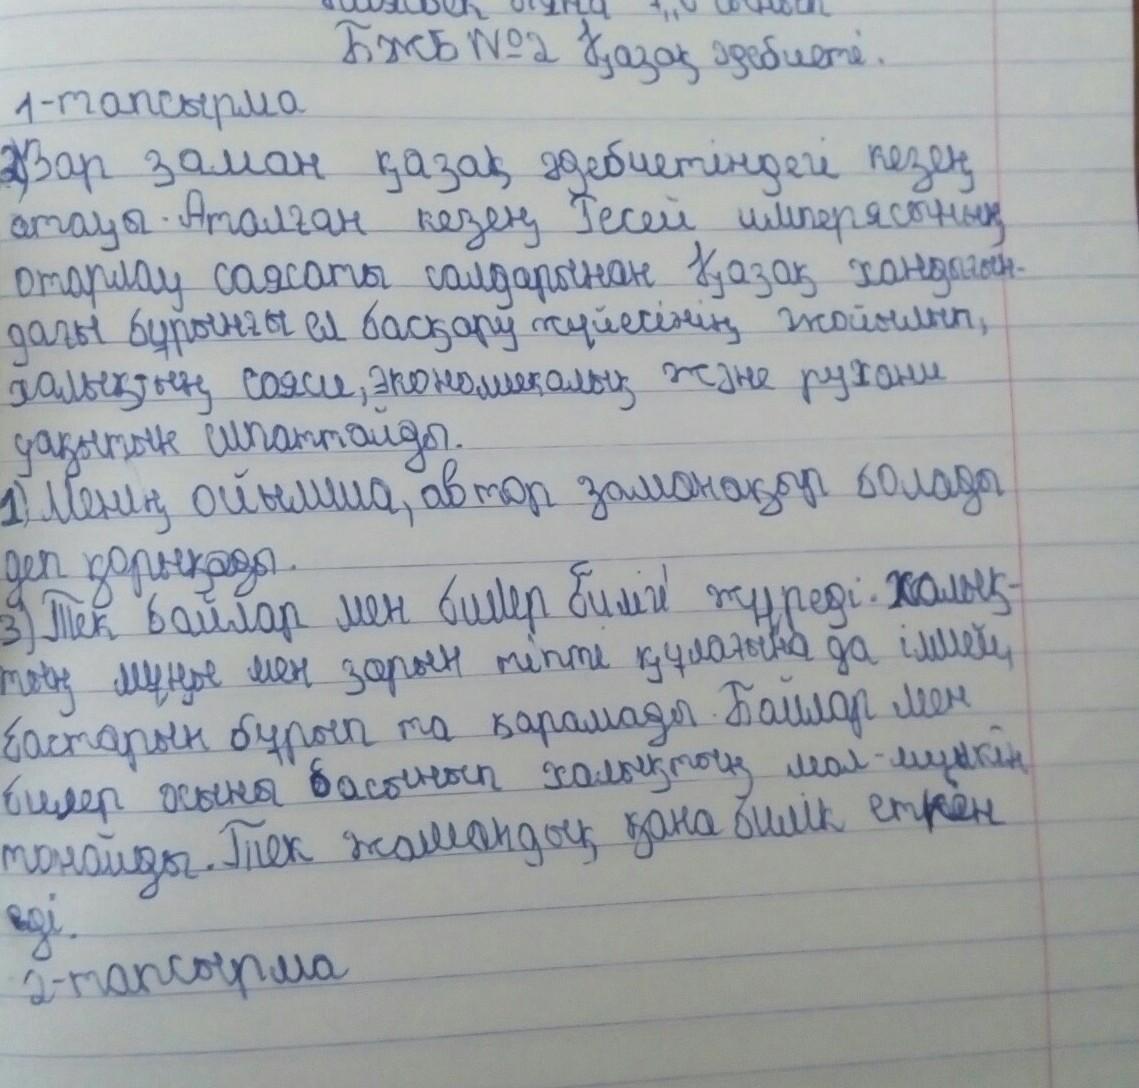 БЖБ №2 Қазақ әдебиеті.
1-тапсырма
2) Зар заман қазақ әдебиетіндегі кезең
атауы. Аталған кезең Ресей имперясының
отарлау саясаты салдарынан Қазақ хандығын-
дағы бұрынғы ел басқару жүйесінің жойылып,
халықтың саяси, экономикалық және рухани
уақытын сипаттайды.
1) Менің ойымша, автор заманақыр болады
деп қорықады.
3) Тек байлар мен билер билігі жүреді. Халық-
тың мұңы мен зарын тіпті құлағына да ілмей,
бастарын бұрып та қарамады. Байлар мен
билер осыны басынып халықтың мал-мүлкін
тонайды. Тек жамандық қана билік еткен
еді.
2-тапсырма